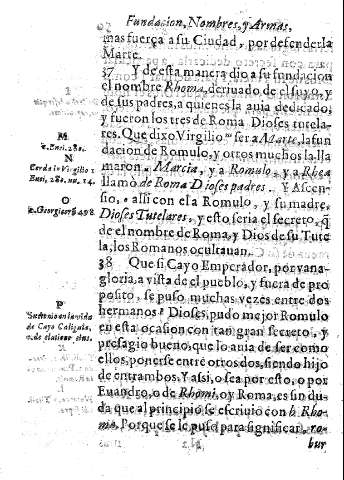 Fundacion, Nombres, y Armas,
mas fuerça a su Ciudad, por defenderla
Marte.
37 Y de esta manera dio a su fundacion
el nombre Rhoma, deriuado de el suyo, y
de sus padres, a quienes la auia dedicado,
y fueron los tres de Roma Dioses tutela-
res. Que dixo Virgilio m ser a Marte, la fun
dacion de Romulo, y otros muchos la lla
maron n Marcia, y a Romulo, y a Rhea
llamò de Roma Dioses padres. Y Ascen-
sio, o assi con el a Romulo, y su madre,
Dioses Tutelares, y esto seria el secreto, q̃
de el nombre de Roma, y Dios de su Tute
la, los Romanos ocultauan.
38 Que si Cayo Emperador, por vana-
gloria, a vista de el pueblo, y fuera de pro
posito, se puso muchas vezes entre dos
hermanos P Dioses, pudo mejor Romulo
en esta ocasion con tan gran secreto, y
presagio bueno, que lo auia de ser como
ellos, ponerse entre otros dos, siendo hijo
de entrambos. Y assi, o sea por esto, o por
Euandro, o de Rhomi, oy Roma, es sin du-
da que al principio se escriuio con h Rho-
ma. Porque se le puso para significar, ro-
bur
M
Æ. Enei. 281.
N
Cerda in Virgilio 1
Enei, 280. nu. 14.
O
Æ. Georgior. 498
P
Suetonio en la vida
de Cayo Caligula,
c. de elatione eius.